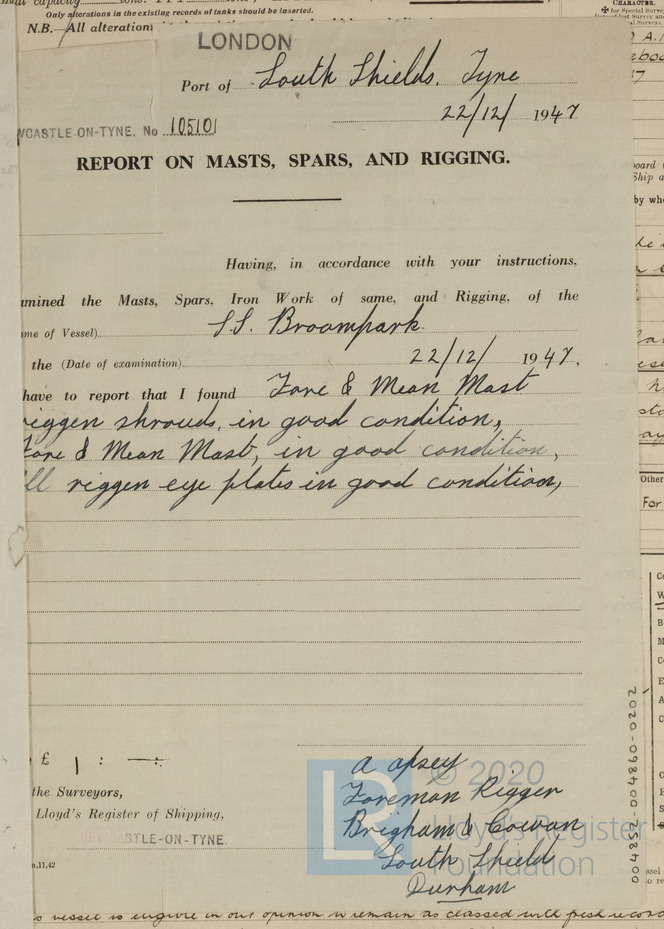 Only alterations in the existing records of tanks should be inserted.
N.B.—All alteration
CHARACTER.
LONDON
Port of South Shields, Tyne
22/12/ 1947
WCASTLE-ON-TYNE. No 105101
REPORT ON MASTS, SPARS, AND RIGGING.
Having, in accordance with your instructions,
amined the Masts, Spars, Iron Work of same, and Rigging, of the
me of Vessel) S.S. Broompark
the (Date of examination) 22/12/ 1947.
have to report that I found Fore & Mean Mast
riggen shrouds, in good condition,
Fore & Mean Mast, in good condition,
ll riggen eye plates in good condition,
Other
For
£ 1 : — :
a apsey
the Surveyors,
Foreman Rigger
Lloyd's Register of Shipping,
Brigham & Cowan
STLE-ON-TYNE.
South Shield
Durham
o.11.42
© 2020
Lloyd's Register
Foundation
004850-004860-0202
vessel is in our opinion to remain as classed with fresh record